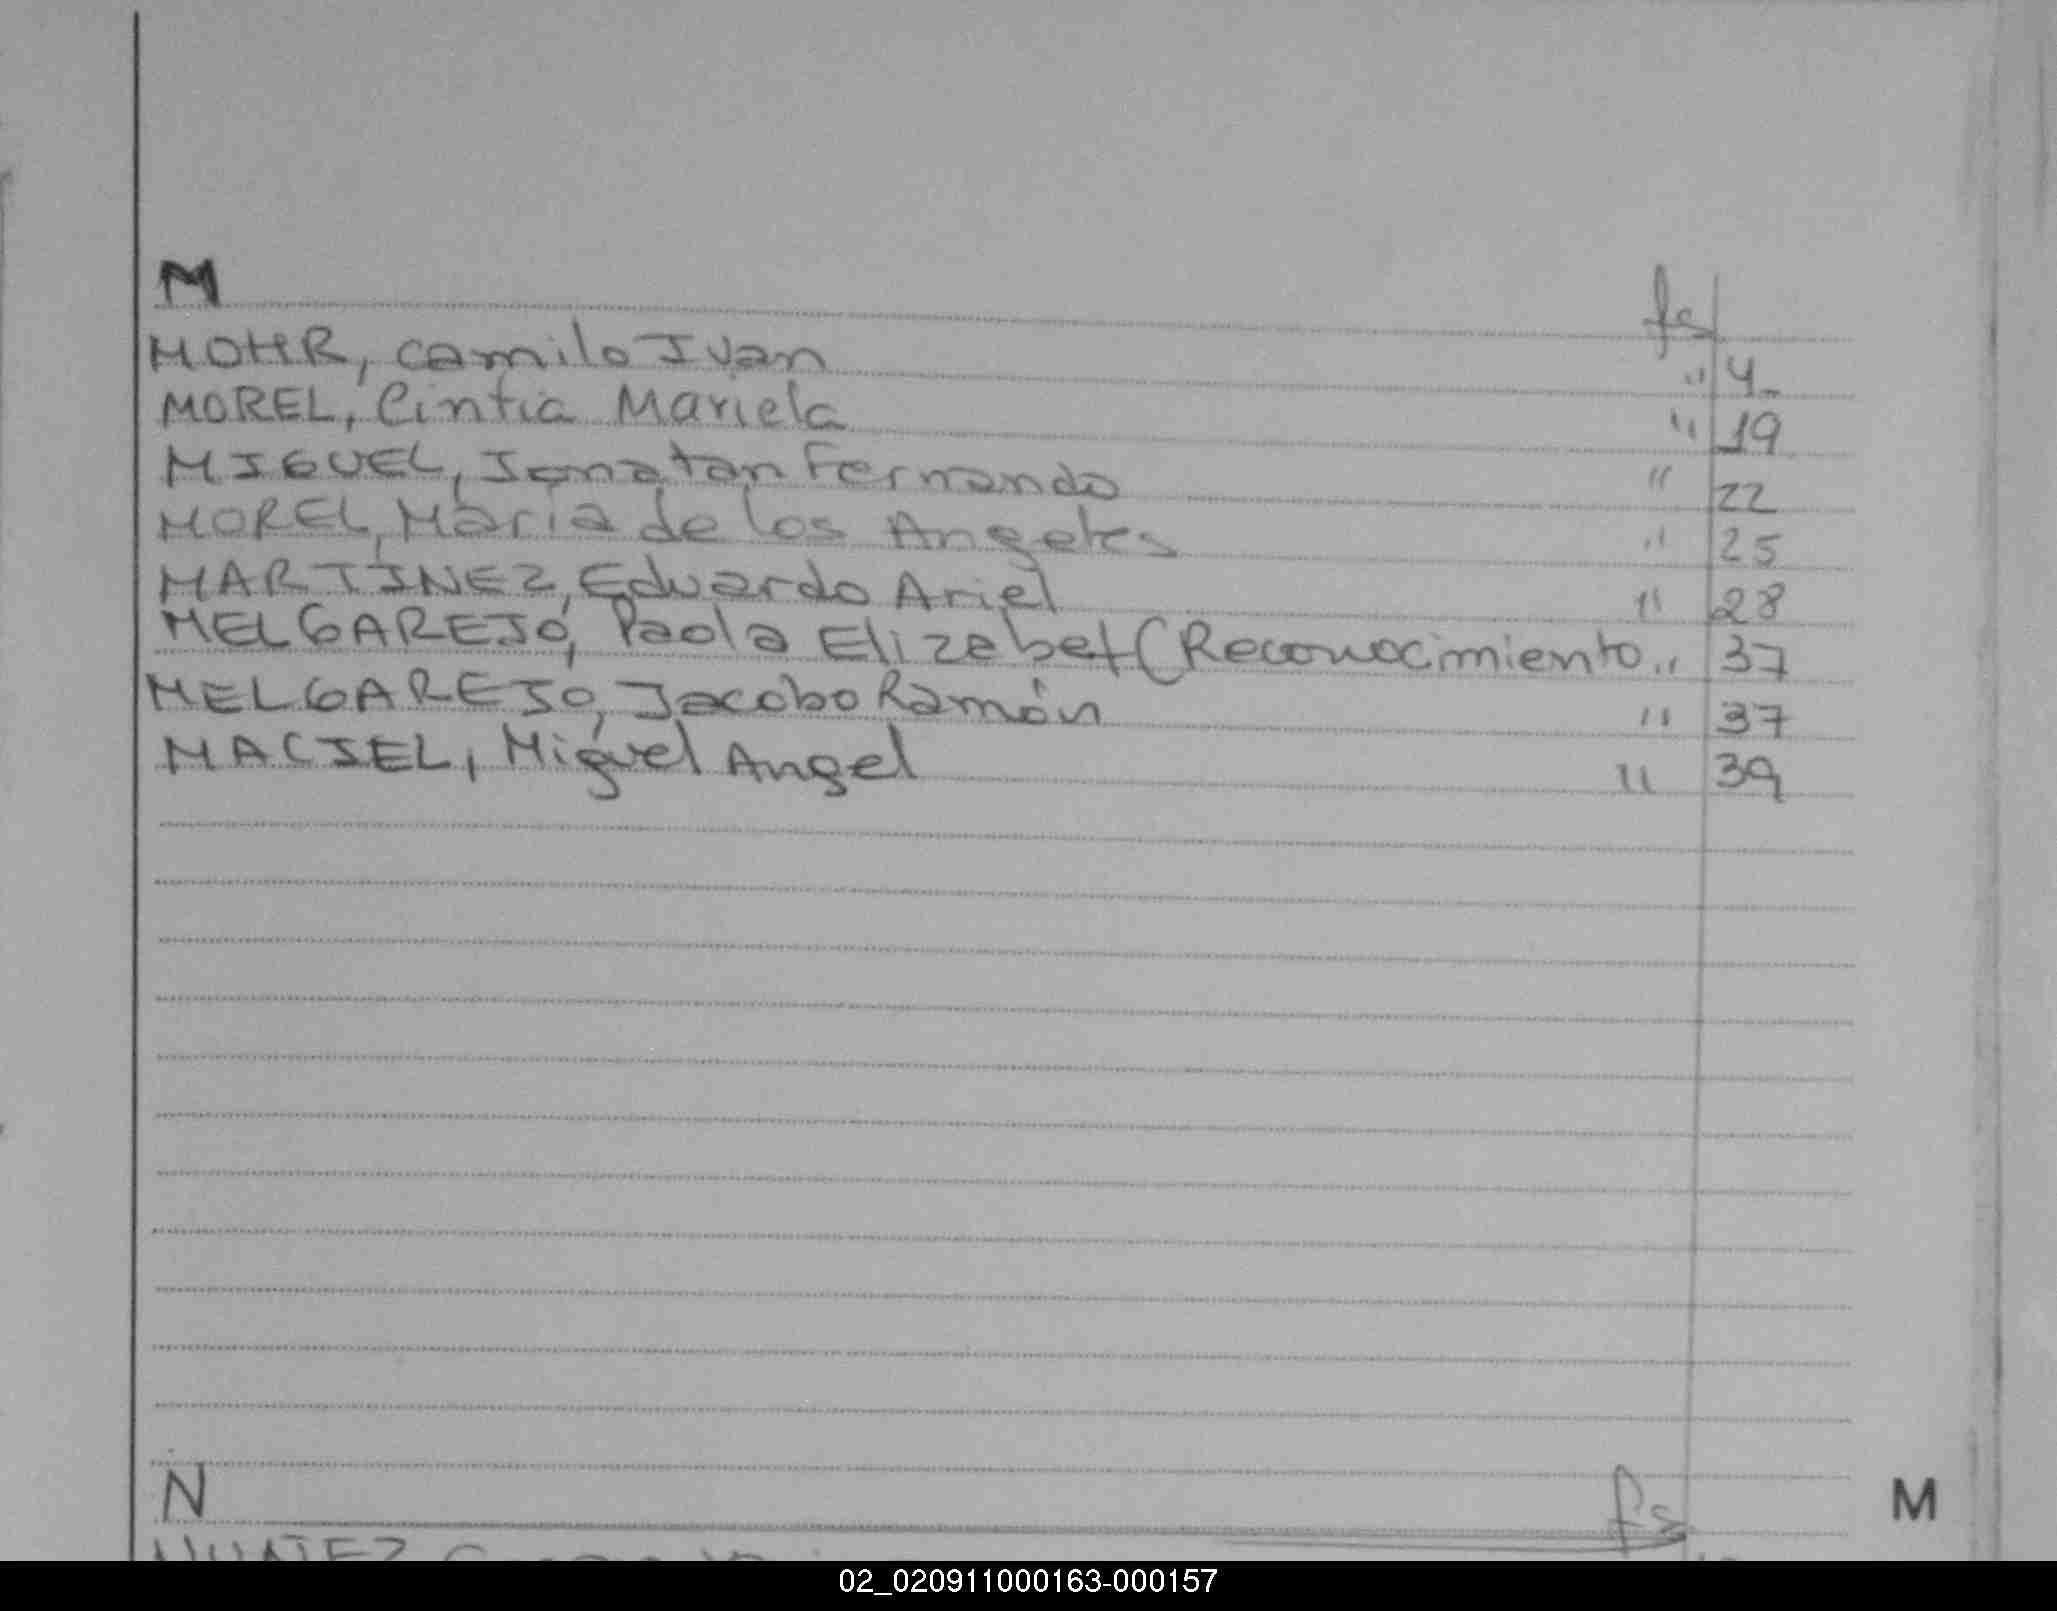 M fs
MOHR, Camilo Ivan " 4-
MOREL, Cintia Mariela " 19
MIGUEL, Jonatan Fernando " 22
MOREL, Maria de los Angeles " 25
MARTINEZ, Eduardo Ariel " 28
MELGAREJO, Paola Elizabet (Reconocimiento " 37
MELGAREJO, Jacobo Ramón " 37
MACIEL, Miguel Angel " 39
N fs
M
02_020911000163-000157